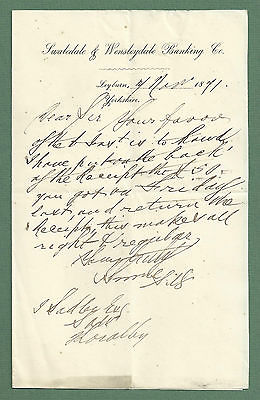 Swaledale & Wensleydale Banking Co.
Leyburn, 4 Nov 1871.
Yorkshire.
Dear Sir Your favor
of the 1 Inst is to hand
have put on the back
of the Receipt the £50
you got on Friday
last and return the
Receipt, this makes all
right & regular
J Sadby Esq
Thoralby